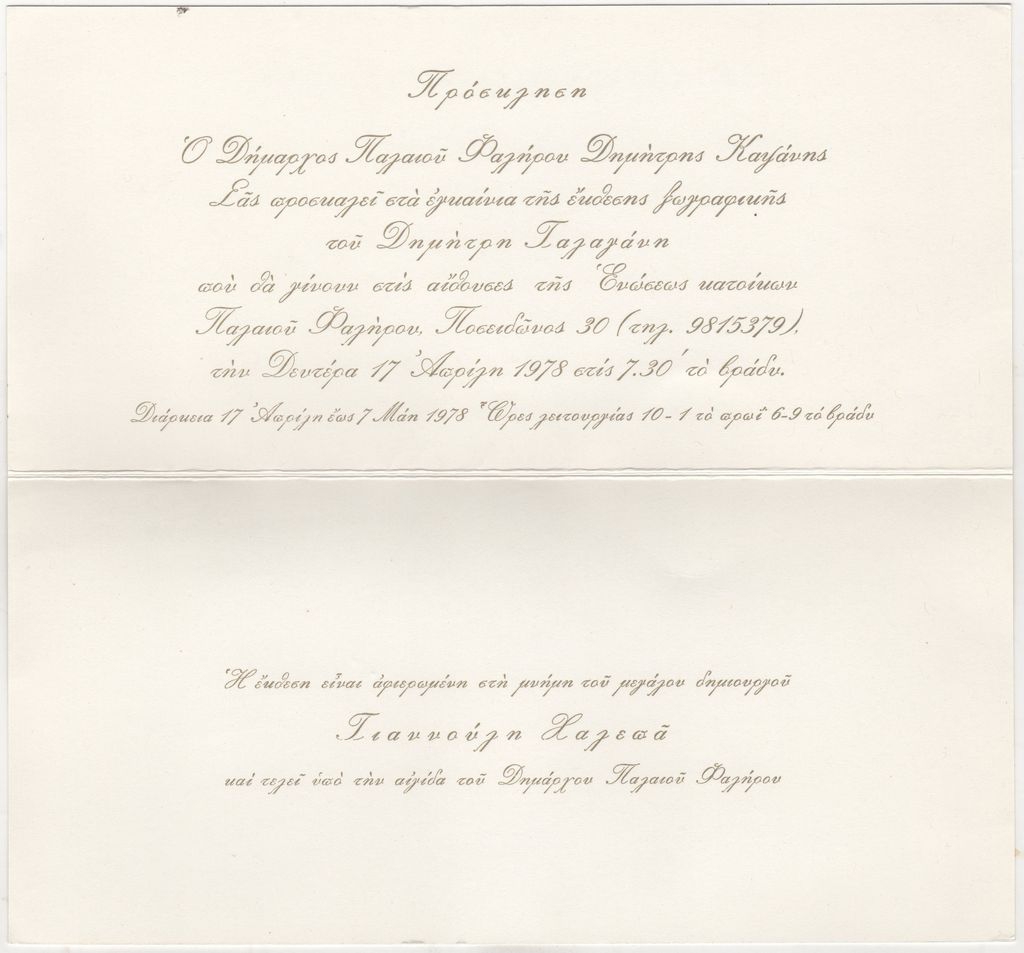 Πρόσκληση
Ὁ Δήμαρχος Παλαιοῦ Φαλήρου Δημήτρης Καψάνης
Σᾶς προσκαλεῖ στὰ ἐγκαίνια τῆς ἔκθεσης ζωγραφικῆς
τοῦ Δημήτρη Ταλαγάνη
ποὺ θὰ γίνουν στὶς αἴθουσες τῆς Ἑνώσεως κατοίκων
Παλαιοῦ Φαλήρου, Ποσειδῶνος 30 (τηλ. 9815379),
τὴν Δευτέρα 17 Ἀπρίλη 1978 στίς 7.30΄ τὸ βράδυ.
Διάρκεια 17 Ἀπρίλη ἕως 7 Μάη 1978 Ὧρες λειτουργίας 10 - 1 τὸ πρωΐ 6-9 τό βράδυ
Ἡ ἔκθεση εἶναι ἀφιερωμένη στὴ μνήμη τοῦ μεγάλου δημιουργοῦ
Γιαννούλη Χαλεπᾶ
καί τελεῖ ὑπὸ τὴν αἰγίδα τοῦ Δημάρχου Παλαιοῦ Φαλήρου